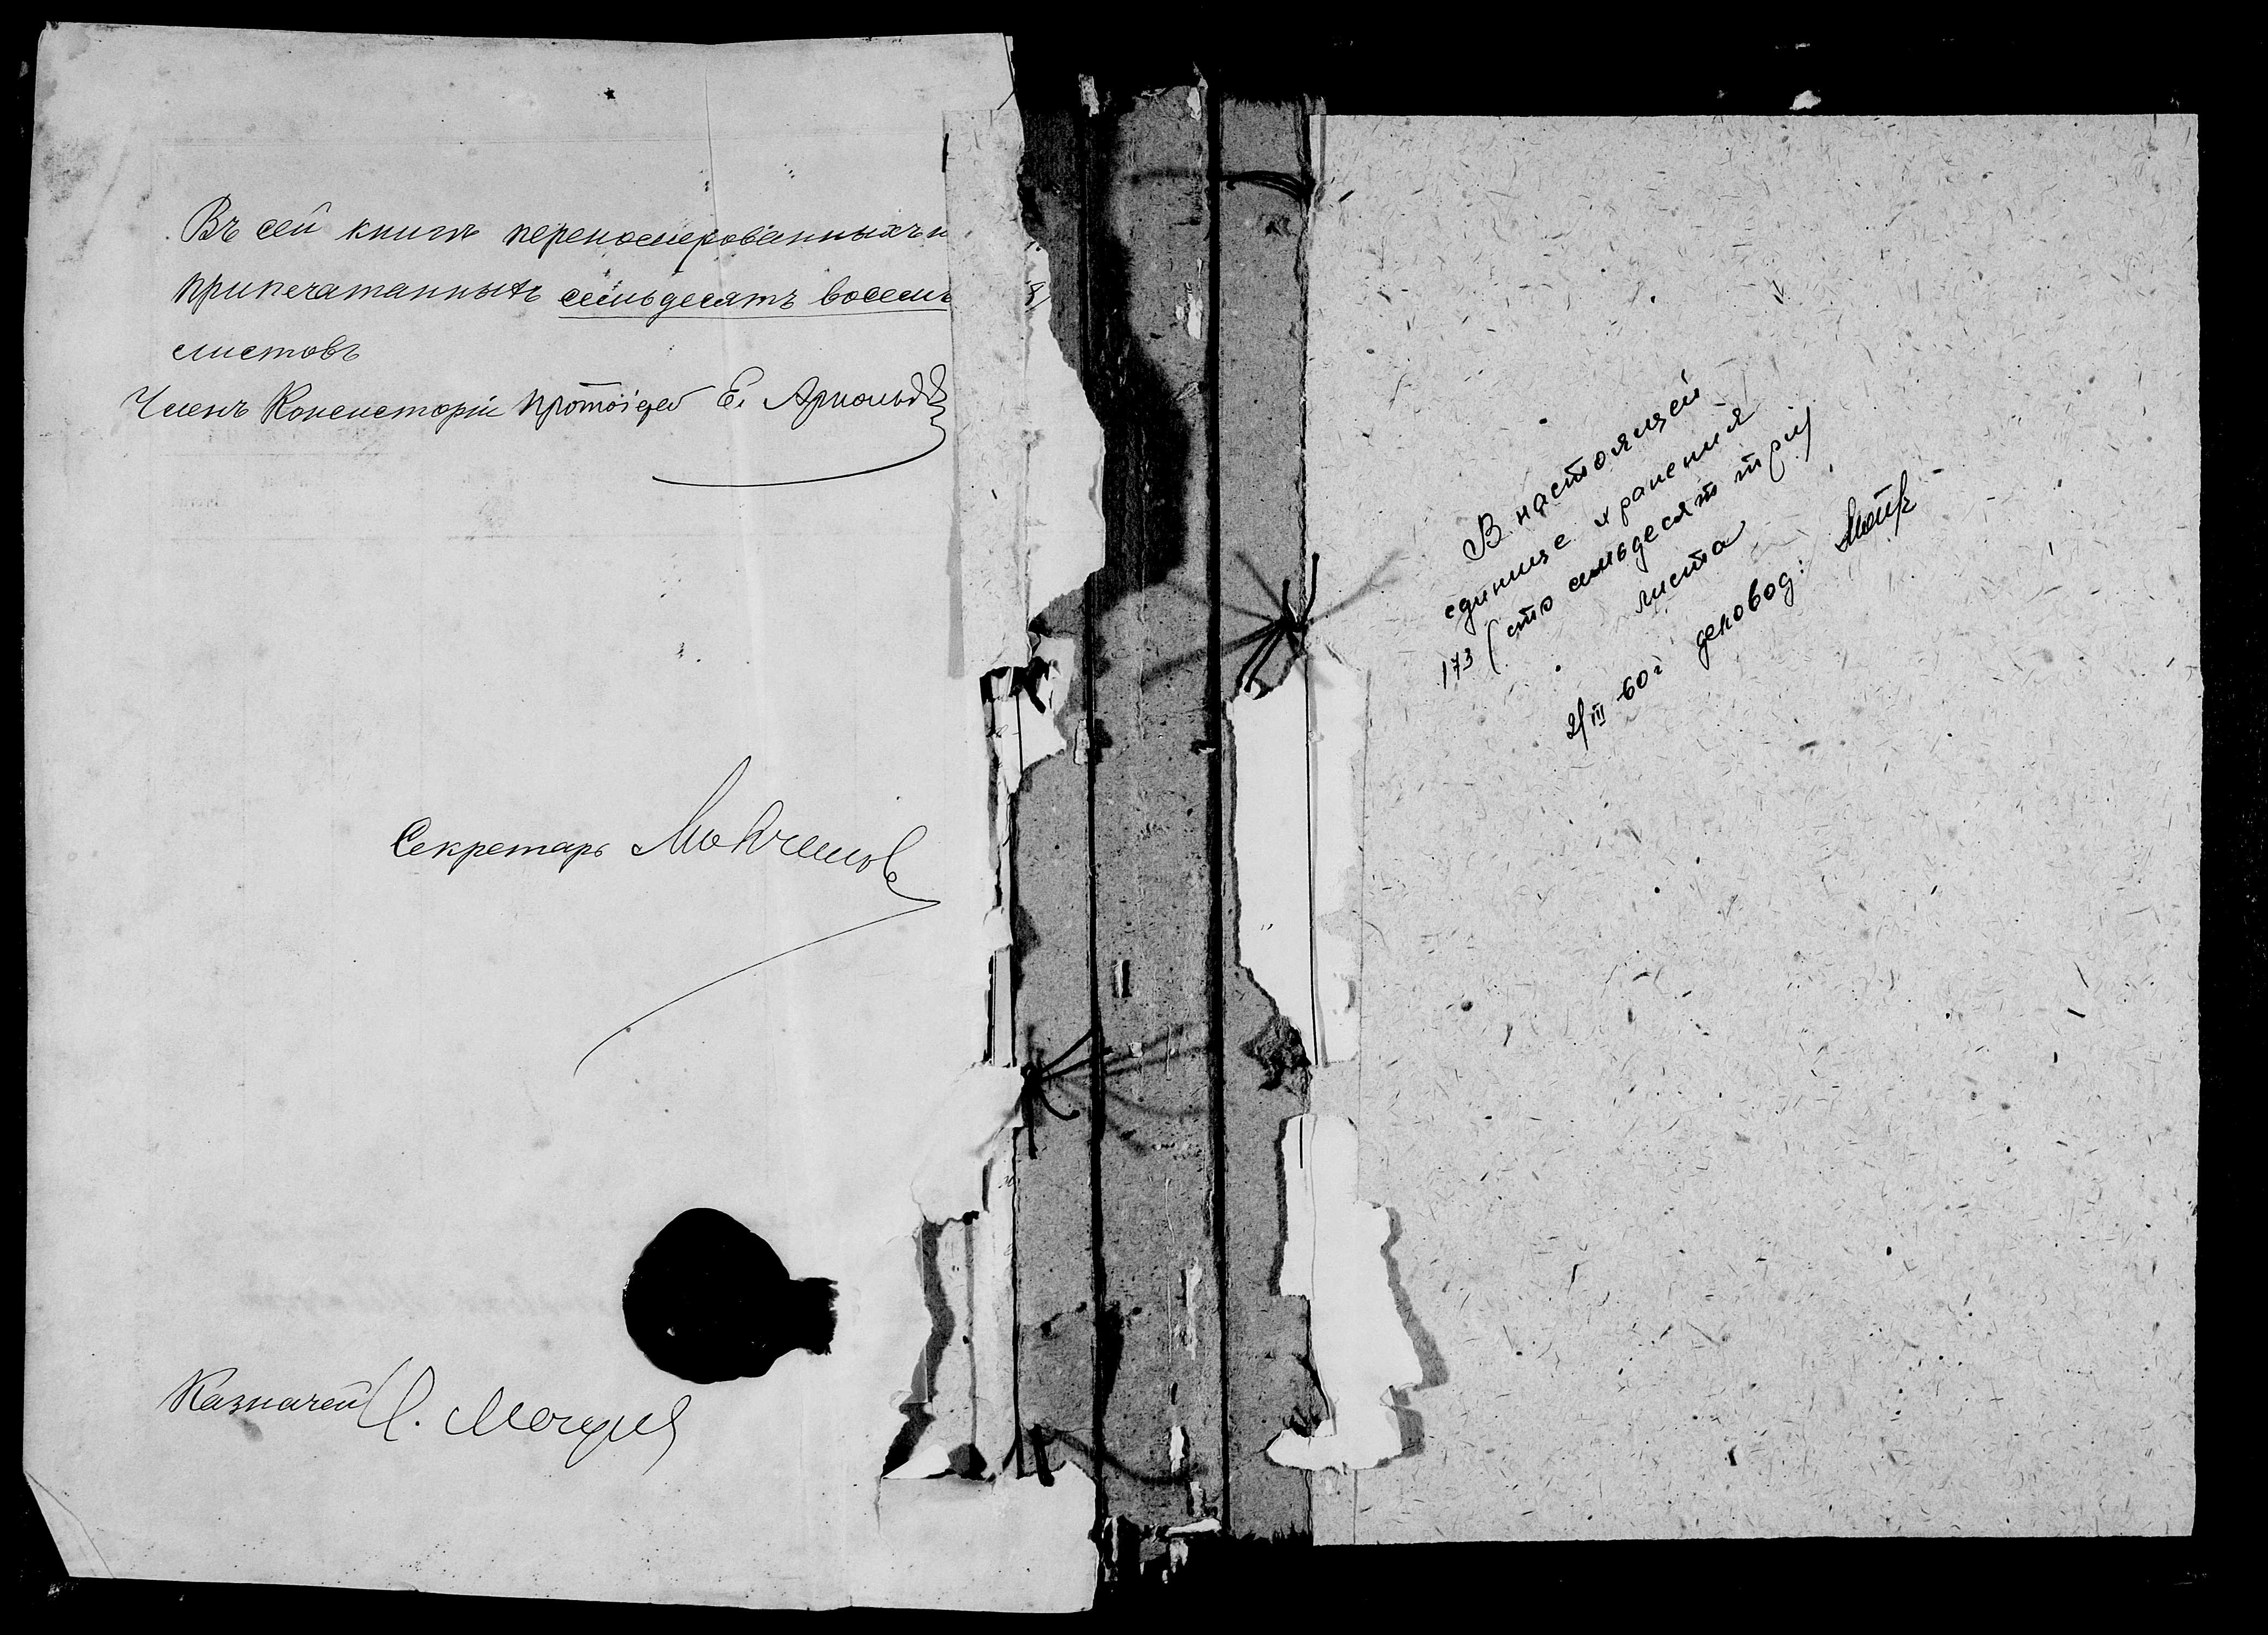 Въ сей книгѣ переномерованныхъ и
припечатанныхъ семьдесятъ восемь
листовъ
Членъ Консисторіи протоіерей Е. Арнольдъ
Секретарь
Казначей
В настоящей
единице хранения
173 (сто семьдесят три)
листа
2/III 60 г деловод: